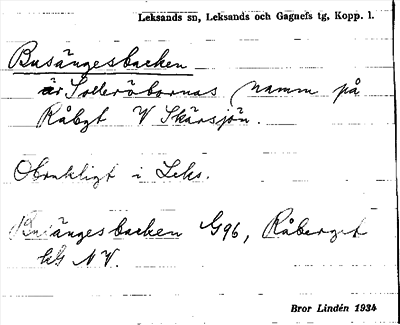 Leksands sn, Leksands och Gagnefs tg, Kopp. l.
Busängesbacken
är Solleröbornas namn på
Råbgt V Skärsjön.
Obrukligt i Leks.
Busängesbacken G96, Råberget
kG NV.
Bror Lindén 1934